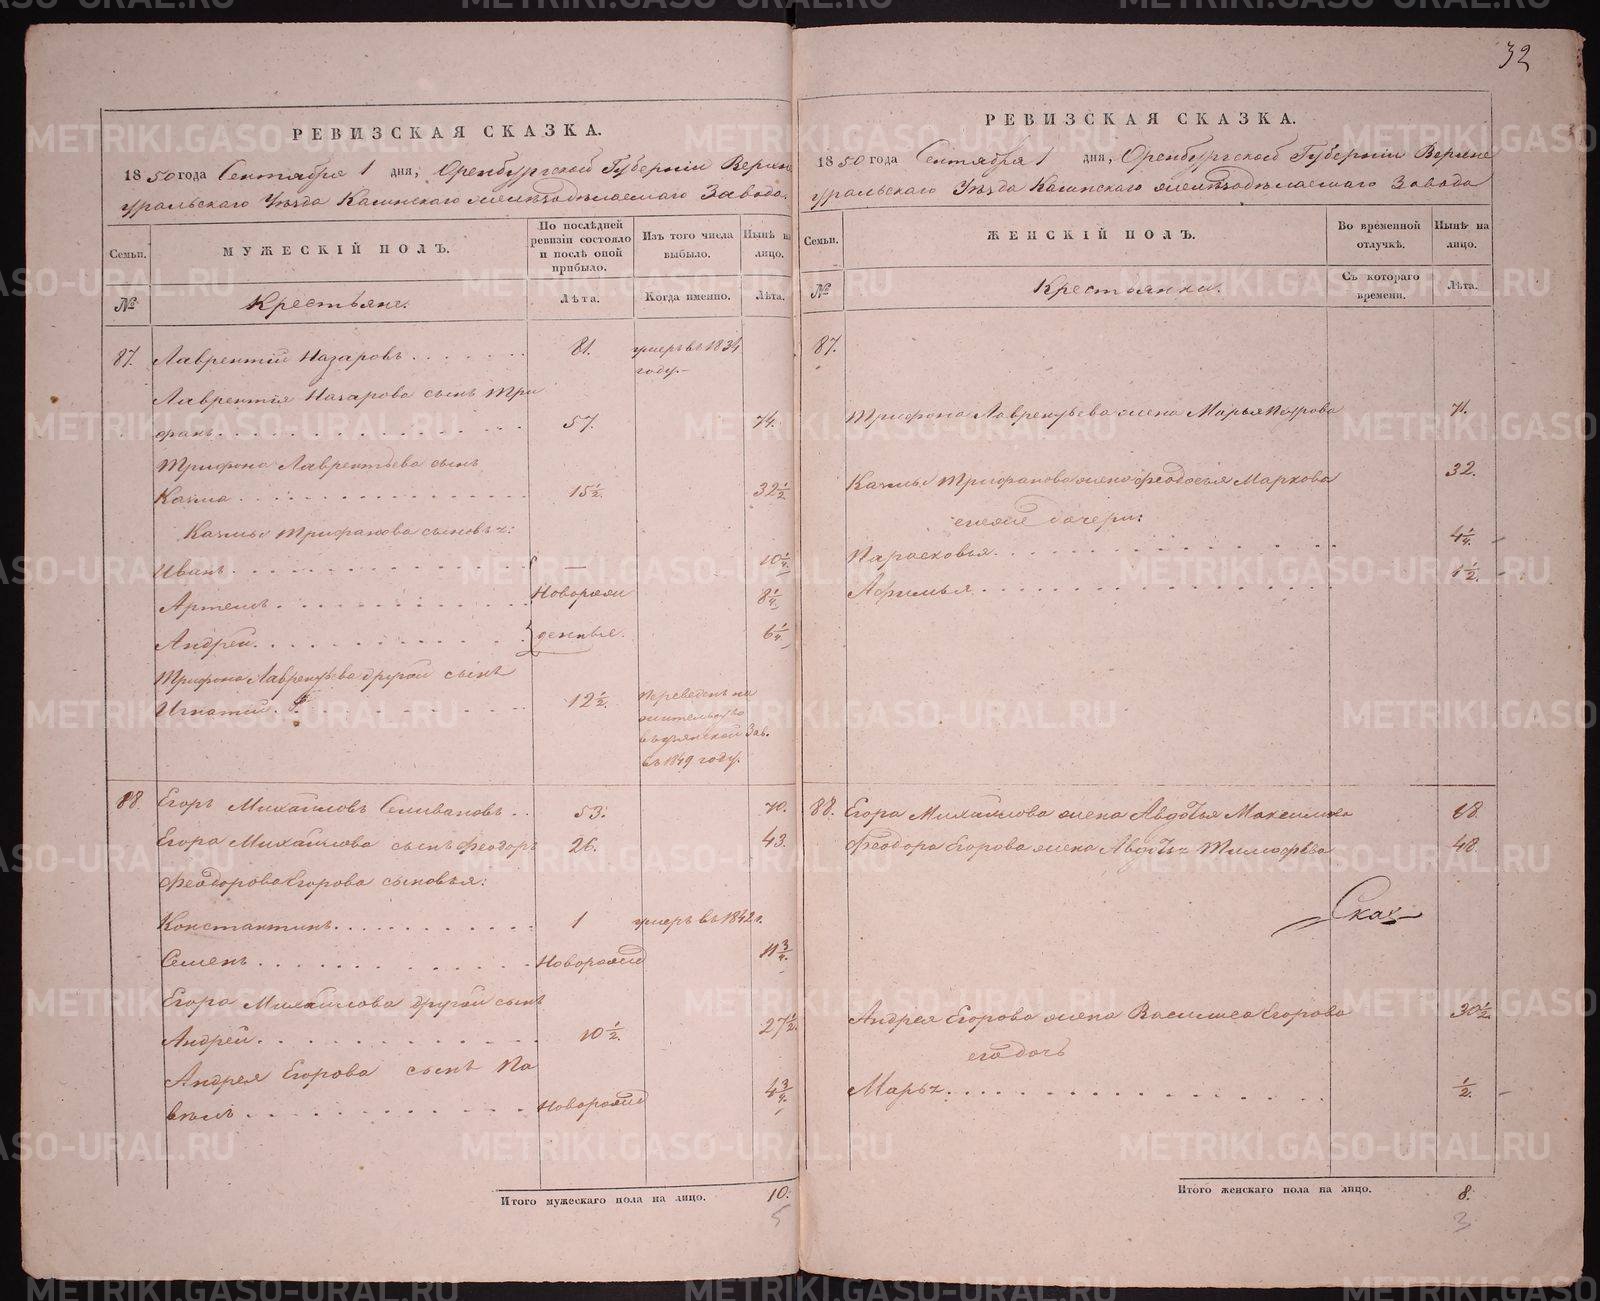 32
РЕВИЗСКАЯ СКАЗКА.
1850 года Сентября 1 дня, Оренбургской Губернiи Верхне
уральскаго Уѣзда Кагинскаго желѣзодѣлаемаго Завода.
Семьи.
МУЖЕСКIЙ ПОЛЪ.
По послѣдней ревизiи состояло и послѣ оной прибыло.
Изъ того числа выбыло.
Нынѣ на лицо.
№
Крестьяне.
Лѣта.
Когда именно.
Лѣта.
87. Лаврентiй Назаровъ 81. умеръ въ 1834
году.
Лаврентiя Назарова сынъ Три
фанъ 57. 74.
Трифона Лаврентьева сынъ
Казма 15½. 32½
Казмы Трифанова сыновьz:
Иванъ — 10¼
Артемъ Новорож 8¼
Андрей денные. 6¼
Трифона Лаврентьева другой сынъ
Игнатiй 12½. Переведенъ на
жительство
въ Узянской Зав.
въ 1849 году.
88. Егоръ Михайловъ Селивановъ 53. 70.
Егора Михайлова сынъ Феодоръ 26. 43.
Феодорова Егорова сыновья:
Константинъ 1 умеръ въ 1842 г.
Семенъ Новорожд 11¾
Егора Михайлова другой сынъ
Андрей 10½. 27½.
Андрея Егорова сынъ Па
велъ Новорожд 4¾
Итого мужескаго пола на лицо. 10.
5
РЕВИЗСКАЯ СКАЗКА.
1850 года Сентября 1 дня, Оренбургской Губернiи Верхне
уральскаго Уѣзда Кагинскаго желѣзодѣлаемаго Завода
Семьи.
ЖЕНСКIЙ ПОЛЪ.
Во временной отлучкѣ.
Нынѣ на лицо.
№
Крестьянки.
Съ котораго времени.
Лѣта.
87.
Трифона Лаврентьева жена Марья Петрова 71.
Казмы Трифанова жена Феодосья Маркова 32.
дочери:
Парасковья 4¼
Афимья 1½.
88. Егора Михайлова жена Авдотья Максимова 68.
Феодора Егорова жена Авдотьz Тимофѣева 48.
Сказ
Андрея Егорова жена Василиса Егорова 30½.
его дочь
Марьz ½.
Итого женскаго пола на лицо. 8.
3
METRIKI.GASO-URAL.RU